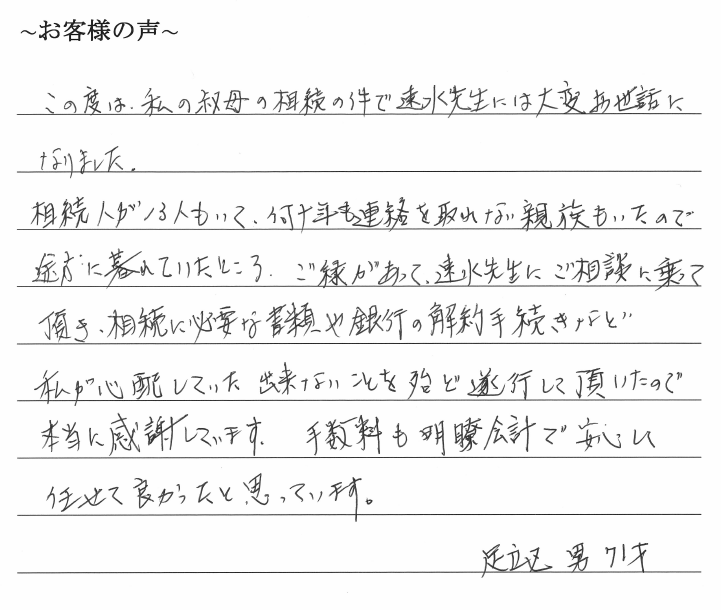 ~お客様の声~
この度は、私の叔母の相続の件で速水先生には大変お世話に
なりました。
相続人が18人もいて、何十年も連絡を取れない親族もいたので
途方に暮れていたところ、ご縁があって、速水先生にご相談に乗って
頂き、相続に必要な書類や銀行の解約手続きなど
私が心配していた出来ないことを殆ど遂行して頂いたので
本当に感謝しています。手数料も明瞭会計で安心して
任せて良かったと思っています。
足立区 男 71才